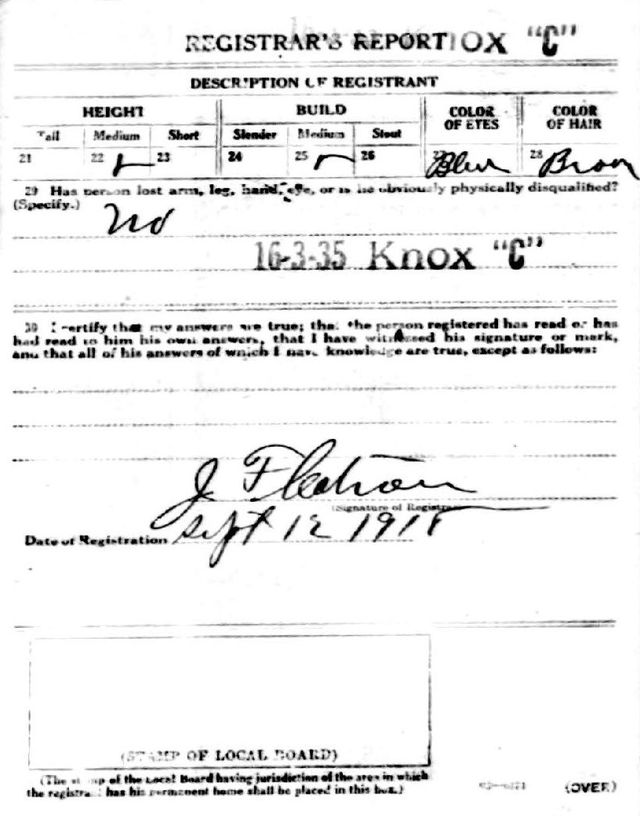 REGISTRAR'S REPORT OX "C"
DESCRIPTION OF REGISTRANT
HEIGHT BUILD COLOR OF EYES COLOR OF HAIR
Tall Medium Short Slender Medium Stout
21 22 ✓ 23 24 25 ✓ 26 27 Blue 28 Brown
29 Has person lost arm, leg, hand, eye, or is he obviously physically disqualified?
(Specify.) No
16-3-35 Knox "C"
30 I certify that my answers are true; that the person registered has read or has
had read to him his own answers, that I have witnessed his signature or mark,
and that all of his answers of which I have knowledge are true, except as follows:
J
(Signature of Registrar)
Date of Registration Sept 12 1918
(STAMP OF LOCAL BOARD)
(The stamp of the Local Board having jurisdiction of the area in which
the registrant has his permanent home shall be placed in this box.)
(OVER)